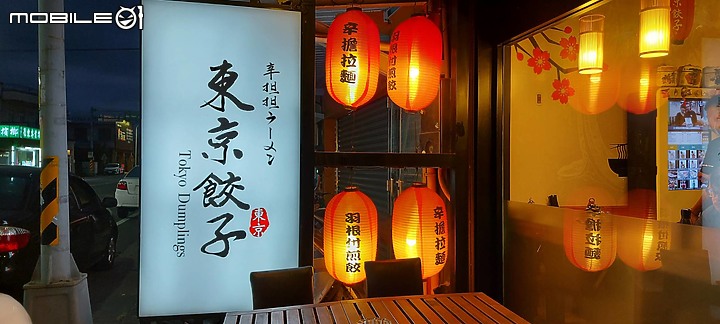 MOBILE01
辛担担ラーメン
東京餃子
Tokyo Dumplings
東京
辛擔拉麵
羽根付煎餃
羽根付煎餃
辛擔拉麵
辛擔拉麵